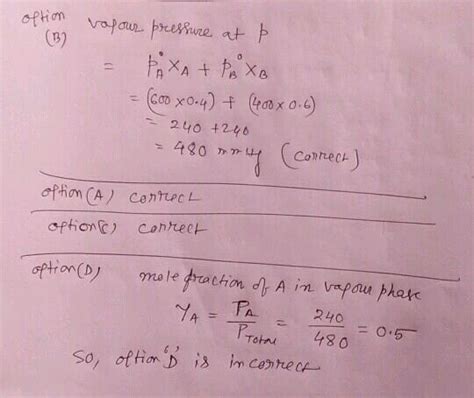 option (B) vapour pressure at P
= P°A XA + P°B XB
= (600 x 0.4) + (400 x 0.6)
= 240 + 240
= 480 mmHg (correct)
option (A) correct
option(c) correct
option(D) mole fraction of A in vapour phase
YA = PA / PTotal = 240 / 480 = 0.5
So, option 'D' is incorrect